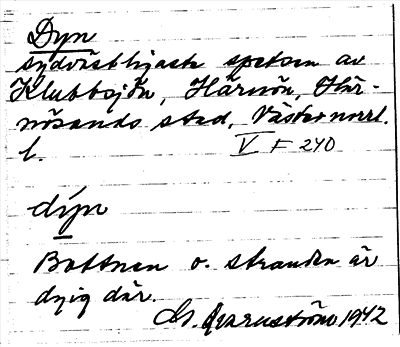 Dyn
sydvästligaste spetsen av
Klubbsjön, Härnön, Här-
nösands stad, Västernorrl.
l. V F 240
dy̱n
Bottnen o. stranden är
dyig där.
Qvarnström 1942